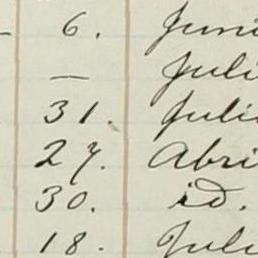 — 6. Juni
— Juli
31. Juli
27. Abri
30. id.
18. Juli